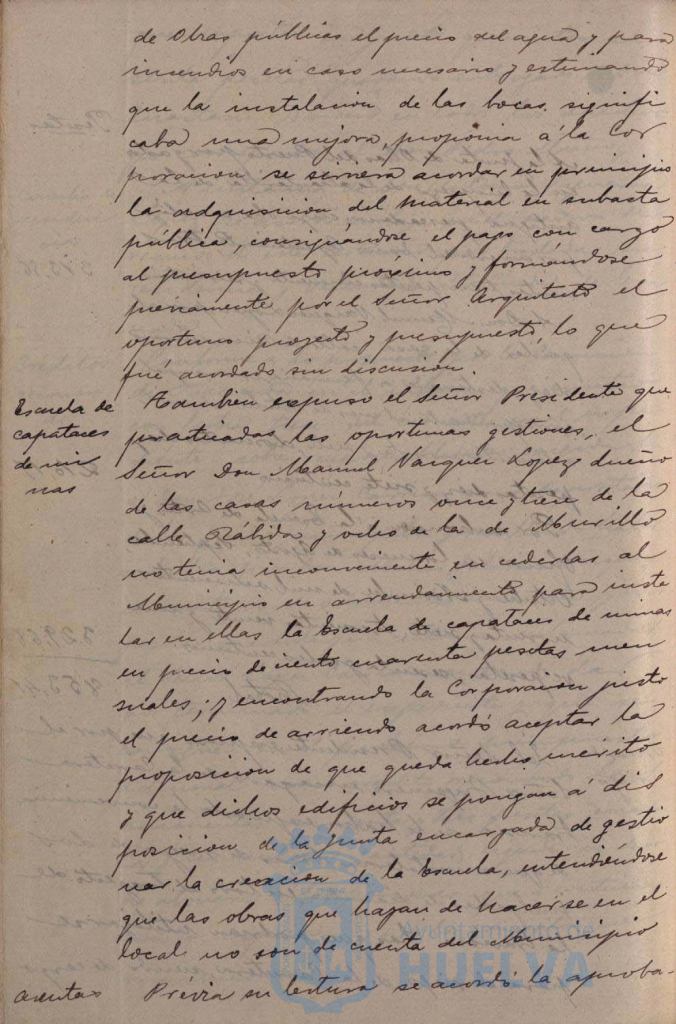 de Obras públicas el precio del agua y para
incendios en caso necesario y estimando
que la instalacion de las bocas signifi
caba una mejora, proponia á la Cor
poracion se sirviera acordar en principio
la adquisicion del material en subasta
pública, consignándose el pago con cargo
al presupuesto próximo y formándose
previamente por el Señor Arquitecto el
oportuno proyecto y presupuesto, lo que
fué acordado sin discusion.
Escuela de
capataces
de mi
nas
Tambien expuso el Señor Presidente que
practicadas las oportunas gestiones, el
Señor Don Manuel Vazquez Lopez dueño
de las casas números once y trece de la
calle Rábida y ocho de la de Murillo
no tenia inconveniente en cederlas al
Municipio en arrendamiento para insta
lar en ellas la Escuela de capataces de minas
en precio de ciento cuarenta pesetas men
suales; y encontrando la Corporacion justo
el precio de arriendo acordó aceptar la
proposicion de que queda hecho mérito
y que dichos edificios se pongan á dis
posicion de la Junta encargada de gestio
nar la creacion de la Escuela, entendiéndose
que las obras que hayan de hacerse en el
local no son de cuenta del Municipio
Cuentas
Prévia su lectura se acordó la aproba-
Ayuntamiento de
HUELVA